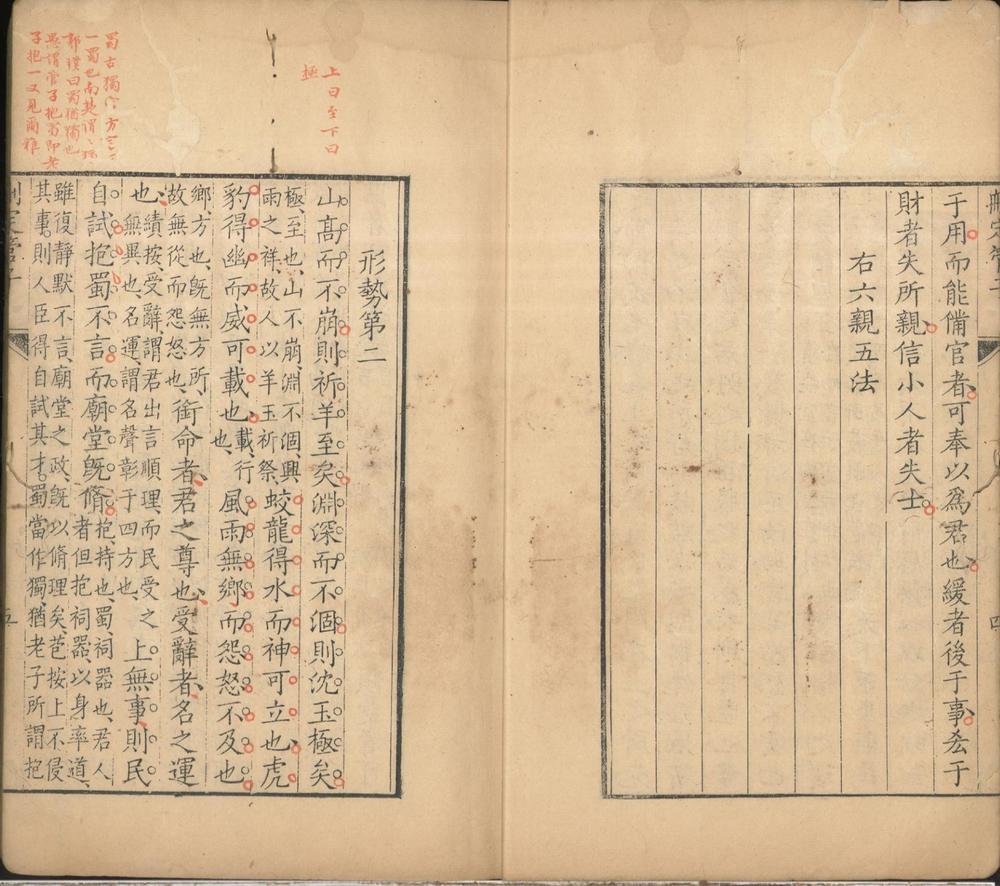 于用而能備官者可奉以爲君也緩者後于事吝于
財者失所親信小人者失士
右六親五法
上曰至下曰
極
形勢第二
山高而不崩則祈羊至矣淵深而不涸則沈玉極矣
極、至也、山不崩、淵不涸、興
雨之祥、故人以羊玉祈祭、
蛟龍得水而神可立也虎
豹得幽而威可載也
載、行
也、
風雨無鄉而怨怒不及也
鄉、方也、既無方所、
故無從而怨怒也、
銜命者、君之尊也、受辭者、名之運
也、
績按、受辭謂君出言順理、而民受之
無異也、名運、謂名聲彰于四方也、
上無事、則民
自試抱蜀不言而廟堂既脩
抱、持也、蜀、祠器也、君人
者但抱祠器、以身率道、
雖復靜默不言、廟堂之政、既以脩理矣、芭按上不侵
其事、則人臣得自試其才。蜀當作獨、猶老子所謂抱
蜀古獨字方言云
一蜀也南楚謂之獨
郭璞曰蜀猶獨也
愚謂管子抱蜀即老
子抱一又見爾雅